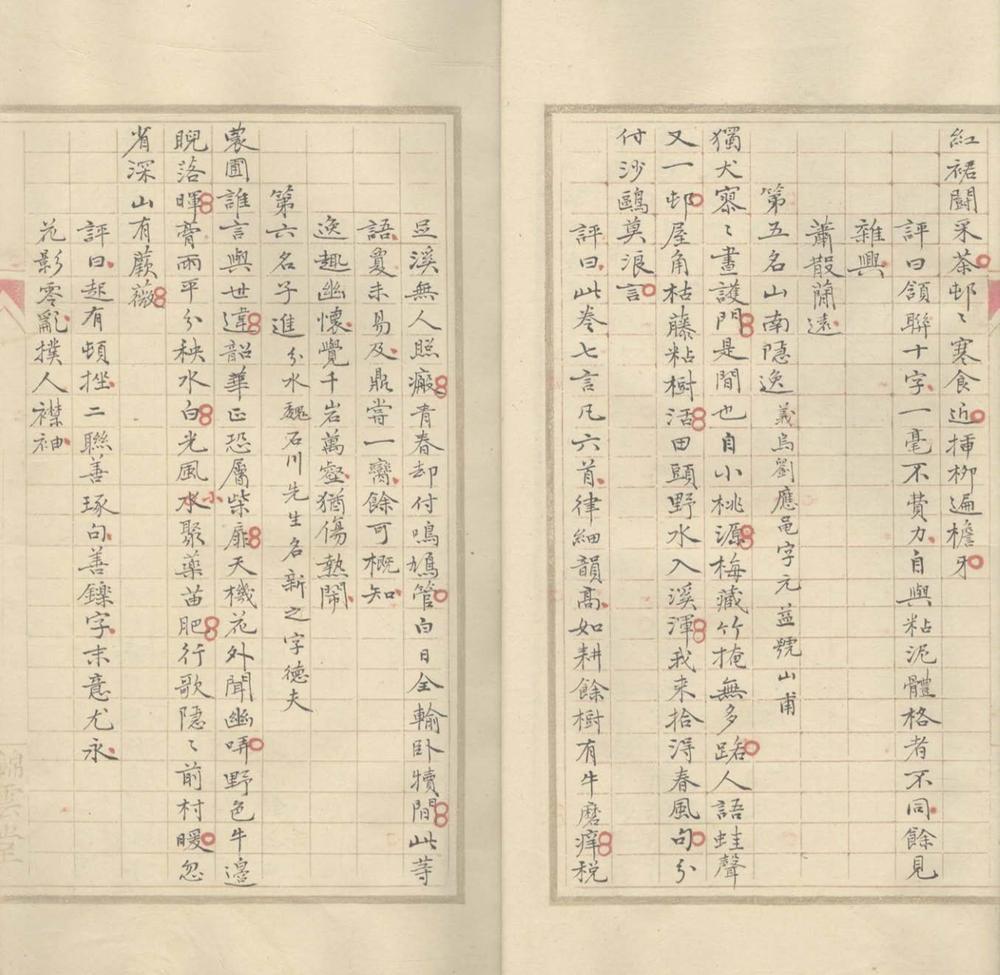 紅裙鬪采茶邨〻寒食近揷柳遍檐牙
評曰頷聯十字一毫不費力自與粘泥體格者不同餘見
雜興
蕭散蘭遠
第五名山南隱逸 義烏劉應龜字元益號山甫
獨犬寥〻晝護門是間也自小桃源梅藏竹掩無多路人語蛙聲
又一邨屋角枯藤粘樹活田頭野水入溪渾我来拾得春風句分
付沙鷗莫浪言
評曰此卷七言凡六首律細韻高如耕餘樹有牛磨癢税
足溪無人照癜青春却付鳴鳩管白日全輸卧犢間此等
語夐未易及鼎嘗一臠餘可概知
逸趣幽懷覺千岩萬壑猶傷熱鬧
第六名子進 分水魏石川先生名新之字德夫
蒙圃誰言與世違韶華正恐屬柴扉天機花外聞幽哢野色牛邊
睨落暉膏雨平分秧水白光風水聚藥苗肥行歌隱〻前村暖忽
省深山有蕨薇
評曰起有頓挫二聯善琢句善鑠字末意尤永
花影零亂撲人襟袖